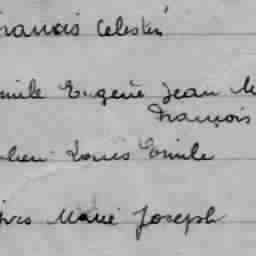 François Célestin
Emile Eugène Jean M
François
Julien Louis Emile
Yves Marie Joseph